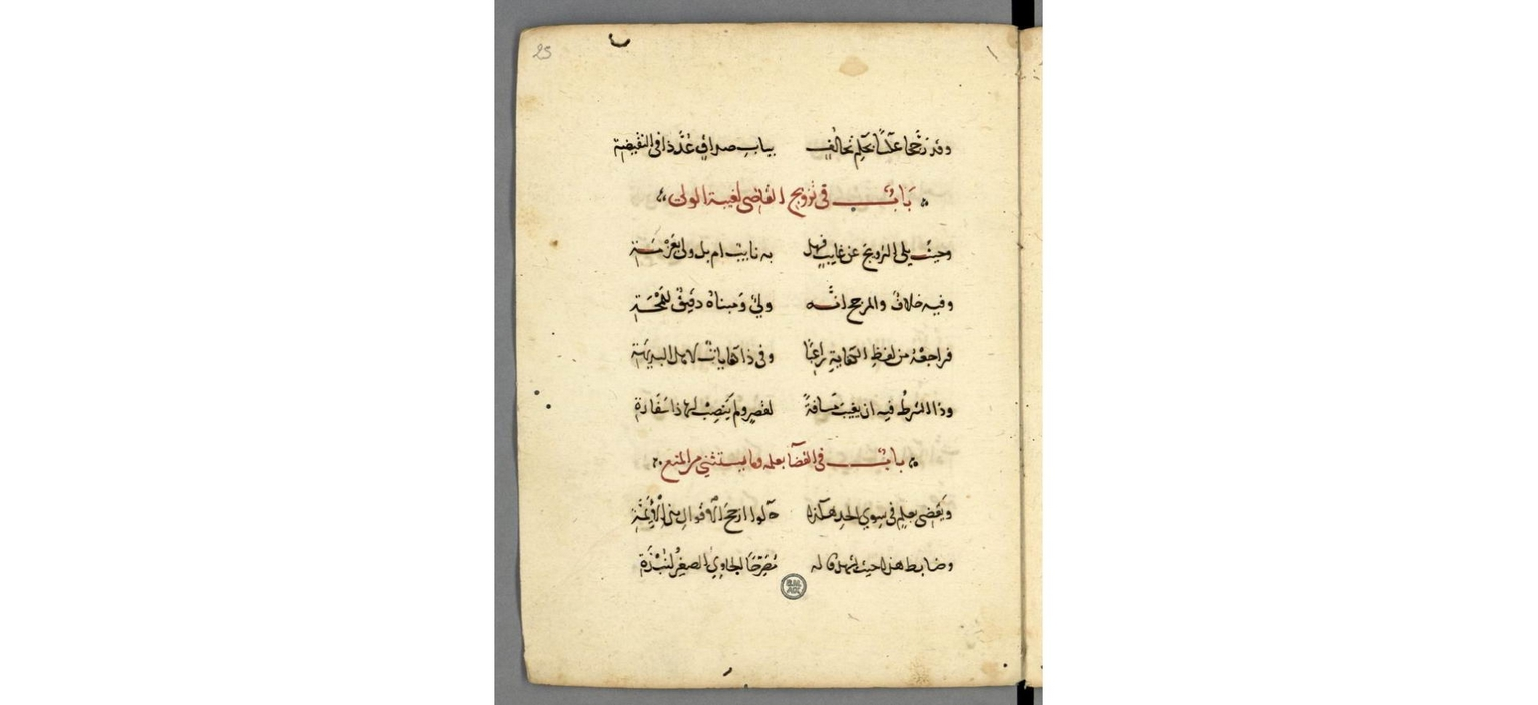 23
وقد رجحا بحلم تخالف بباب صداق عد ذا في النقيضة
باب في تزويج القاضي لغيبة الولي
وحيث يلي التزويج عن غايب فهل به نايب ام بل ولي بعزمة
وفيه خلاف والمرجح انه ولي ومبناه دقيق للمحة
فراجعه من لفظ الكفاية راغبا وفي ذا كفايات لاهل البديهة
وذا الشرط فيه ان يغيب مسافة لقصر ولم ينصب لها ذا سفادة
باب في القضا بعلمه وما يستثنى من المنع
ويقضي بعلم في سوي الحد هكذا حكوا ارجح الاقوال بين الأئمة
وضابط هذا حيث يشهد قاله الحاوي الصغير لنبذة
B.M. AIX